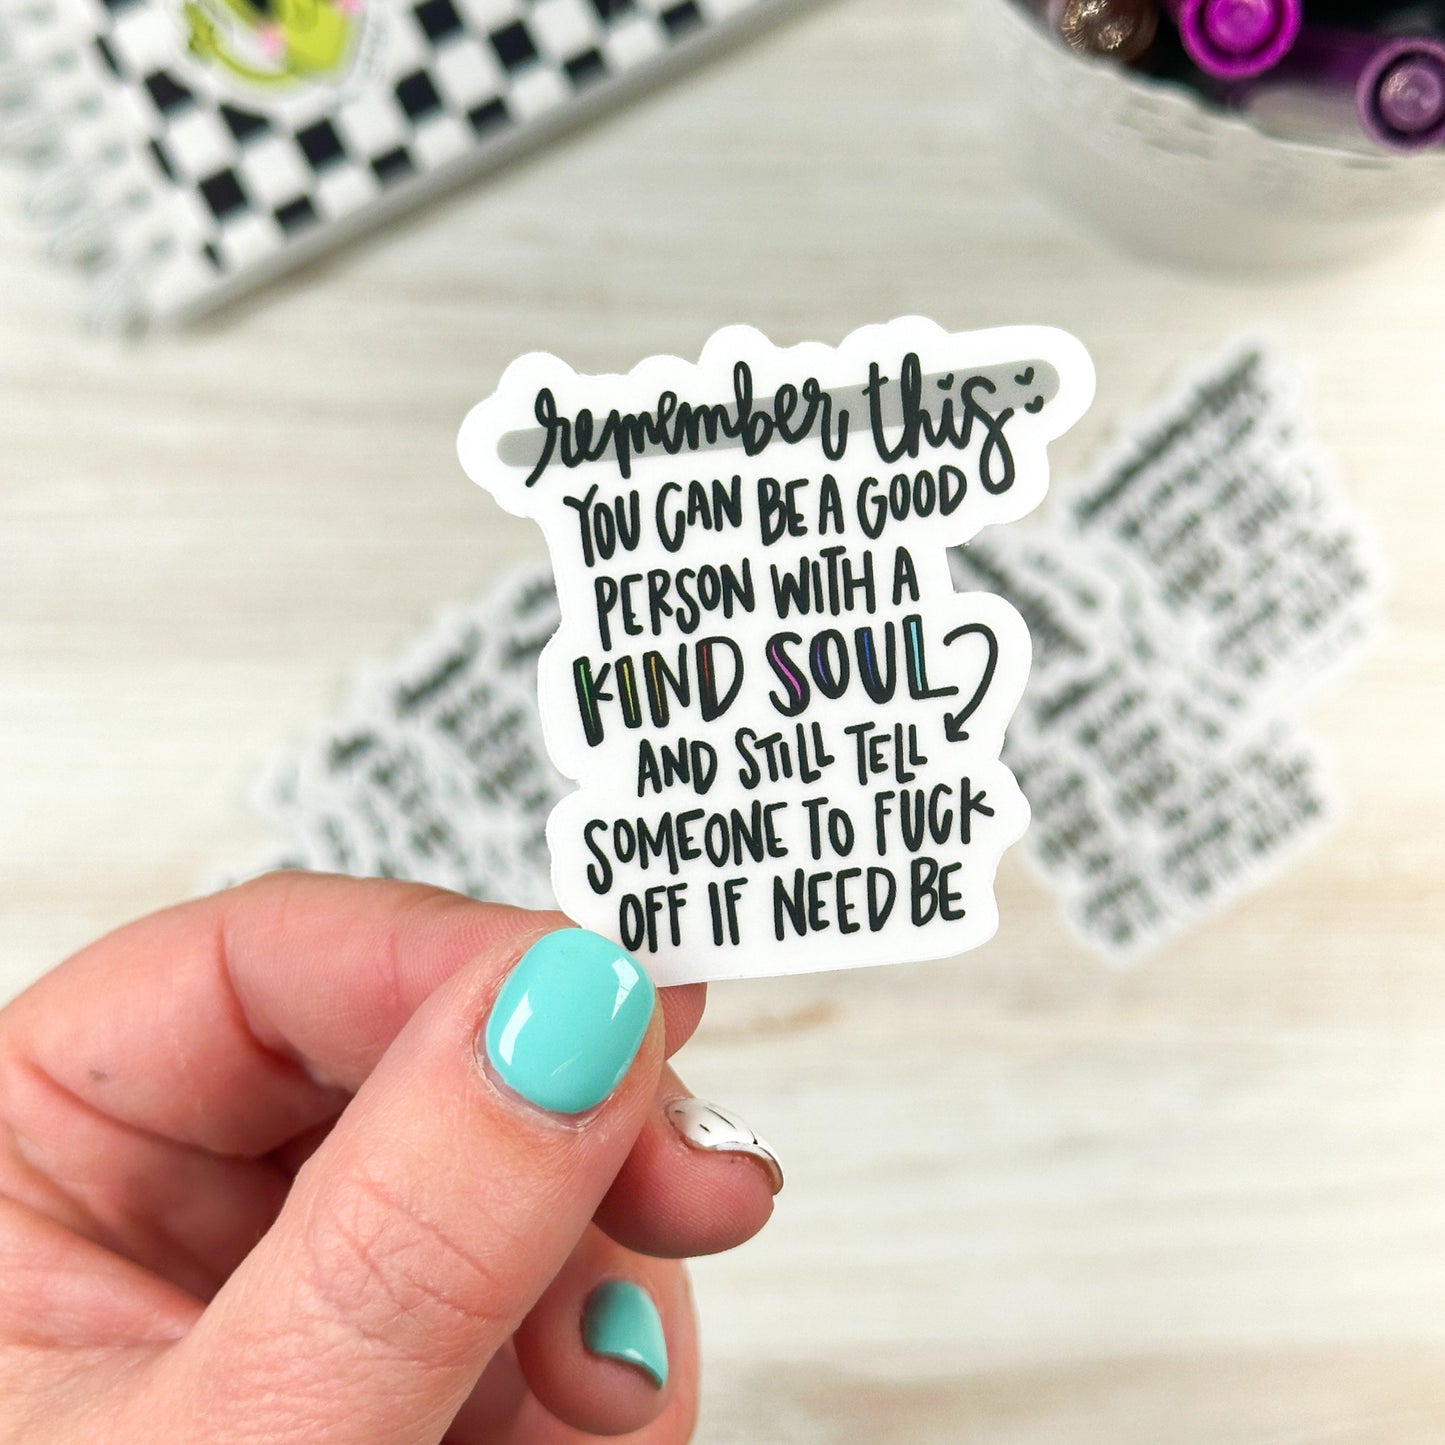 remember this
YOU CAN BE A GOOD
PERSON WITH A
KIND SOUL
AND STILL TELL
SOMEONE TO FUCK
OFF IF NEED BE